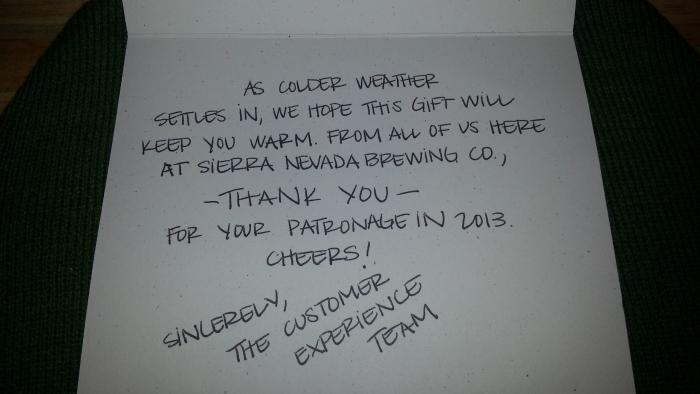 AS COLDER WEATHER
SETTLES IN, WE HOPE THIS GIFT WILL
KEEP YOU WARM. FROM ALL OF US HERE
AT SIERRA NEVADA BREWING CO.,
- THANK YOU -
FOR YOUR PATRONAGE IN 2013.
CHEERS!
SINCERELY,
THE CUSTOMER
EXPERIENCE
TEAM